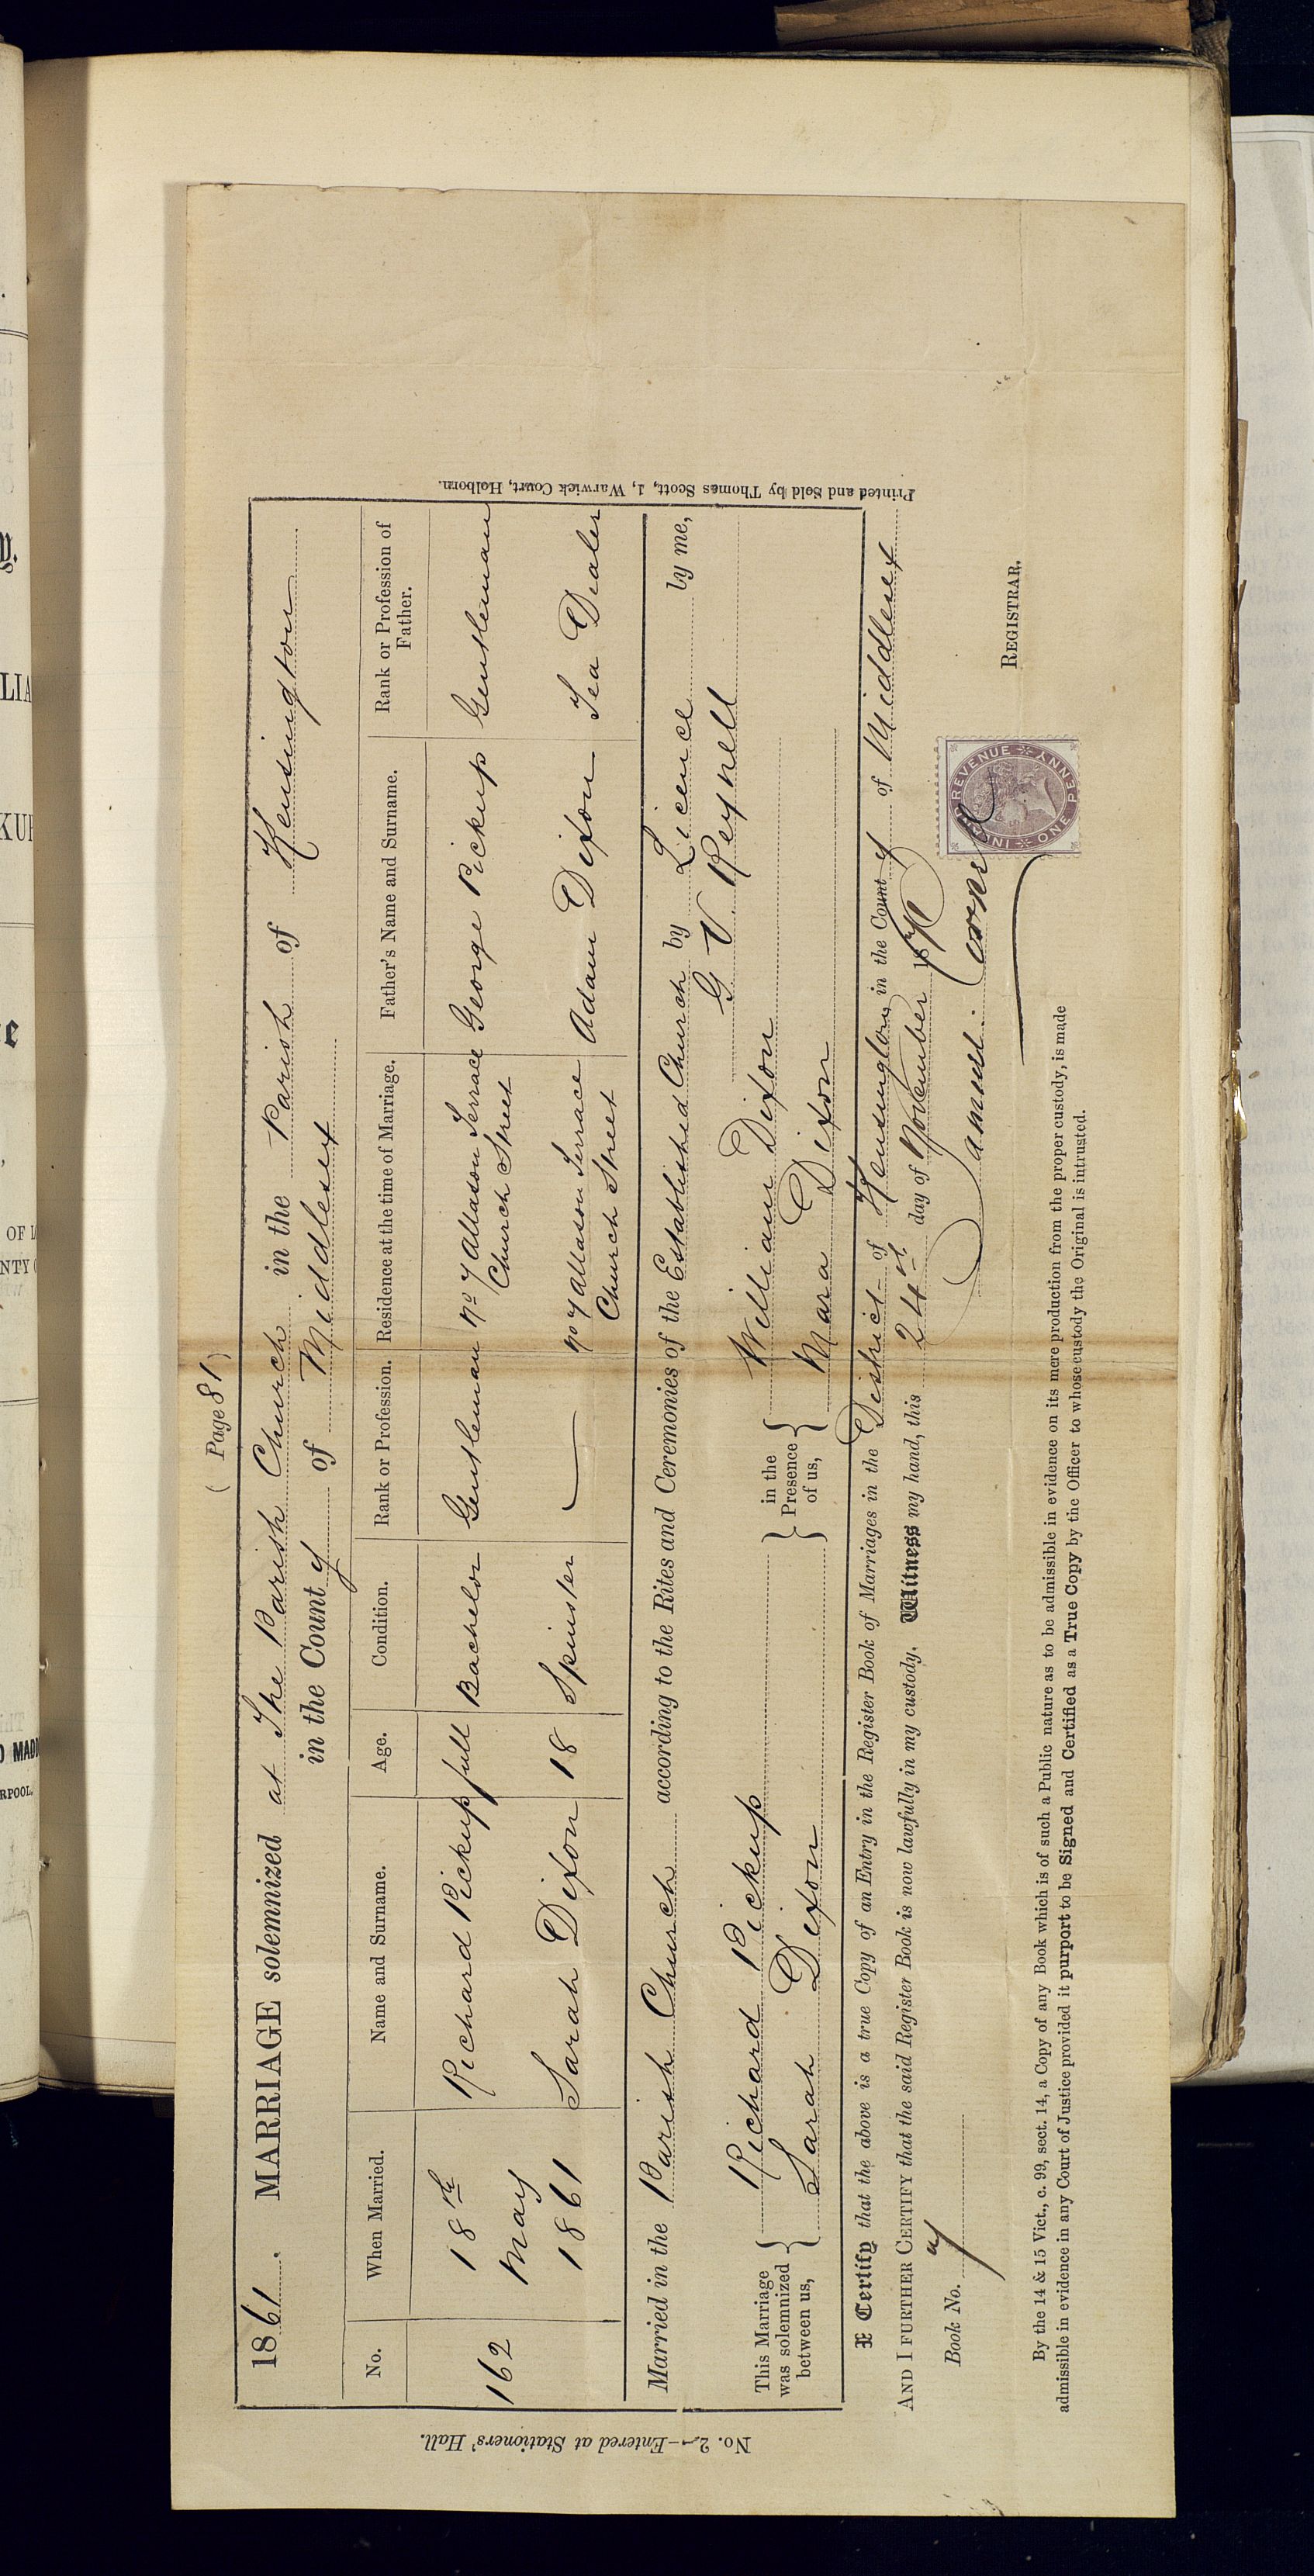 ( Page 81 )
1861. MARRIAGE solemnized at The Parish Church in the Parish of Kensington
in the County of Middlesex
No. When Married. Name and Surname. Age. Condition. Rank or Profession. Residence at the time of Marriage. Father's Name and Surname. Rank or Profession of Father.
162 18th May 1861 Richard Pickup full Bachelor Gentleman No 7 Allason Terrace Church Street George Pickup Gentleman
Sarah Dixon 18 Spinster — No 7 Allason Terrace Church Street Adam Dixon Tea Dealer
Married in the Parish Church according to the Rites and Ceremonies of the Established Church by Licence by me,
G V Reynell
This Marriage was solemnized between us, { Richard Pickup Sarah Dixon } in the Presence of us, { William Dixon Mara Dixon
I Certify that the above is a true Copy of an Entry in the Register Book of Marriages in the District of Kensington in the County of Middlesex
AND I FURTHER CERTIFY that the said Register Book is now lawfully in my custody. Witness my hand, this 24th day of November 18
Book No. 7
Samuel REGISTRAR.
INLAND REVENUE ONE PENNY
By the 14 & 15 Vict., c. 99, sect. 14, a Copy of any Book which is of such a Public nature as to be admissible in evidence on its mere production from the proper custody, is made
admissible in evidence in any Court of Justice provided it purport to be Signed and Certified as a True Copy by the Officer to whose custody the Original is intrusted.
No. 2.—Entered at Stationers' Hall.
Printed and Sold by Thomas Scott, 1, Warwick Court, Holborn.